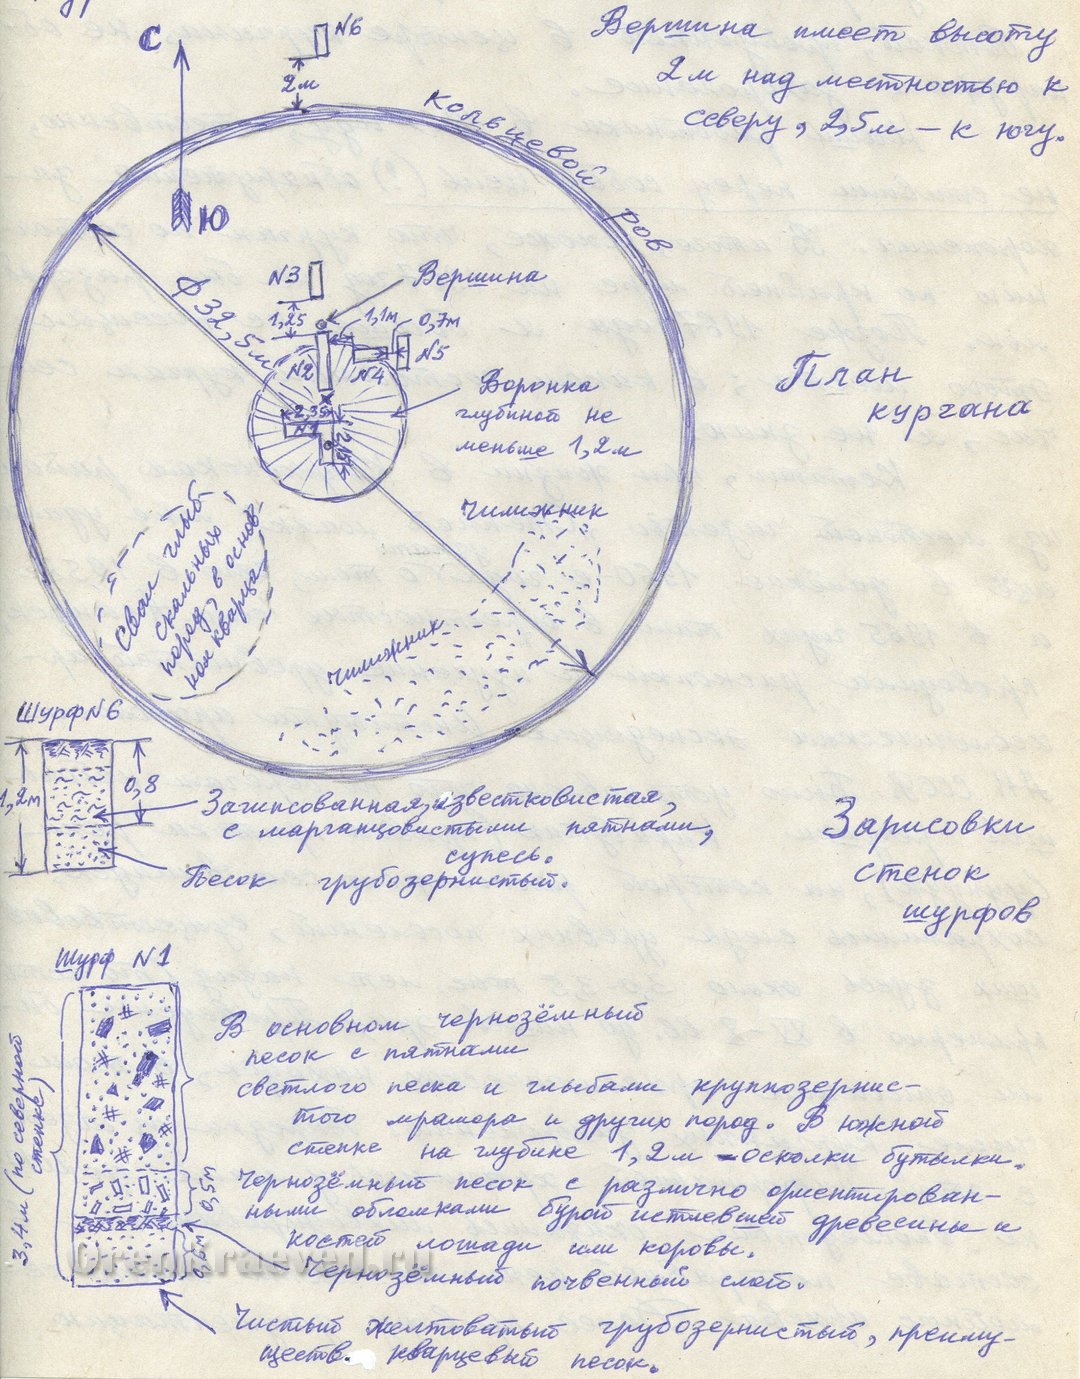 С
N6
2м
Вершина имеет высоту
2м над местностью к
северу, 2,5м – к югу.
Кольцевой ров
Ю
N3
Вершина
1,25
1,1м
0,7м
Ф32,5м
N2
N4
N5
Воронка
глубиной не
меньше 1,2м
2,35
N1
План
кургана
Чилижник
Свал глыб
скальных
пород, в основ-
ном кварца
Чилижник
Шурф N6
1,2м
0,8
Загипсованная, известковистая,
с марганцовистыми пятнами,
супесь.
Песок грубозернистый.
Зарисовки
стенок
шурфов
Шурф N1
3,4м (по северной
стенке)
В основном чернозёмный
песок с пятнами
светлого песка и глыбами крупнозернис-
того мрамора и других пород. В южной
стенке на глубине 1,2м – осколки бутылки.
0,5м
Чернозёмный песок с различно ориентирован-
ными обломками бурой истлевшей древесины и
костей лошади или коровы.
0,6м
Чернозёмный почвенный слой.
Orenkraeved.ru
Чистый желтоватый грубозернистый, преиму-
ществ. кварцевый песок.